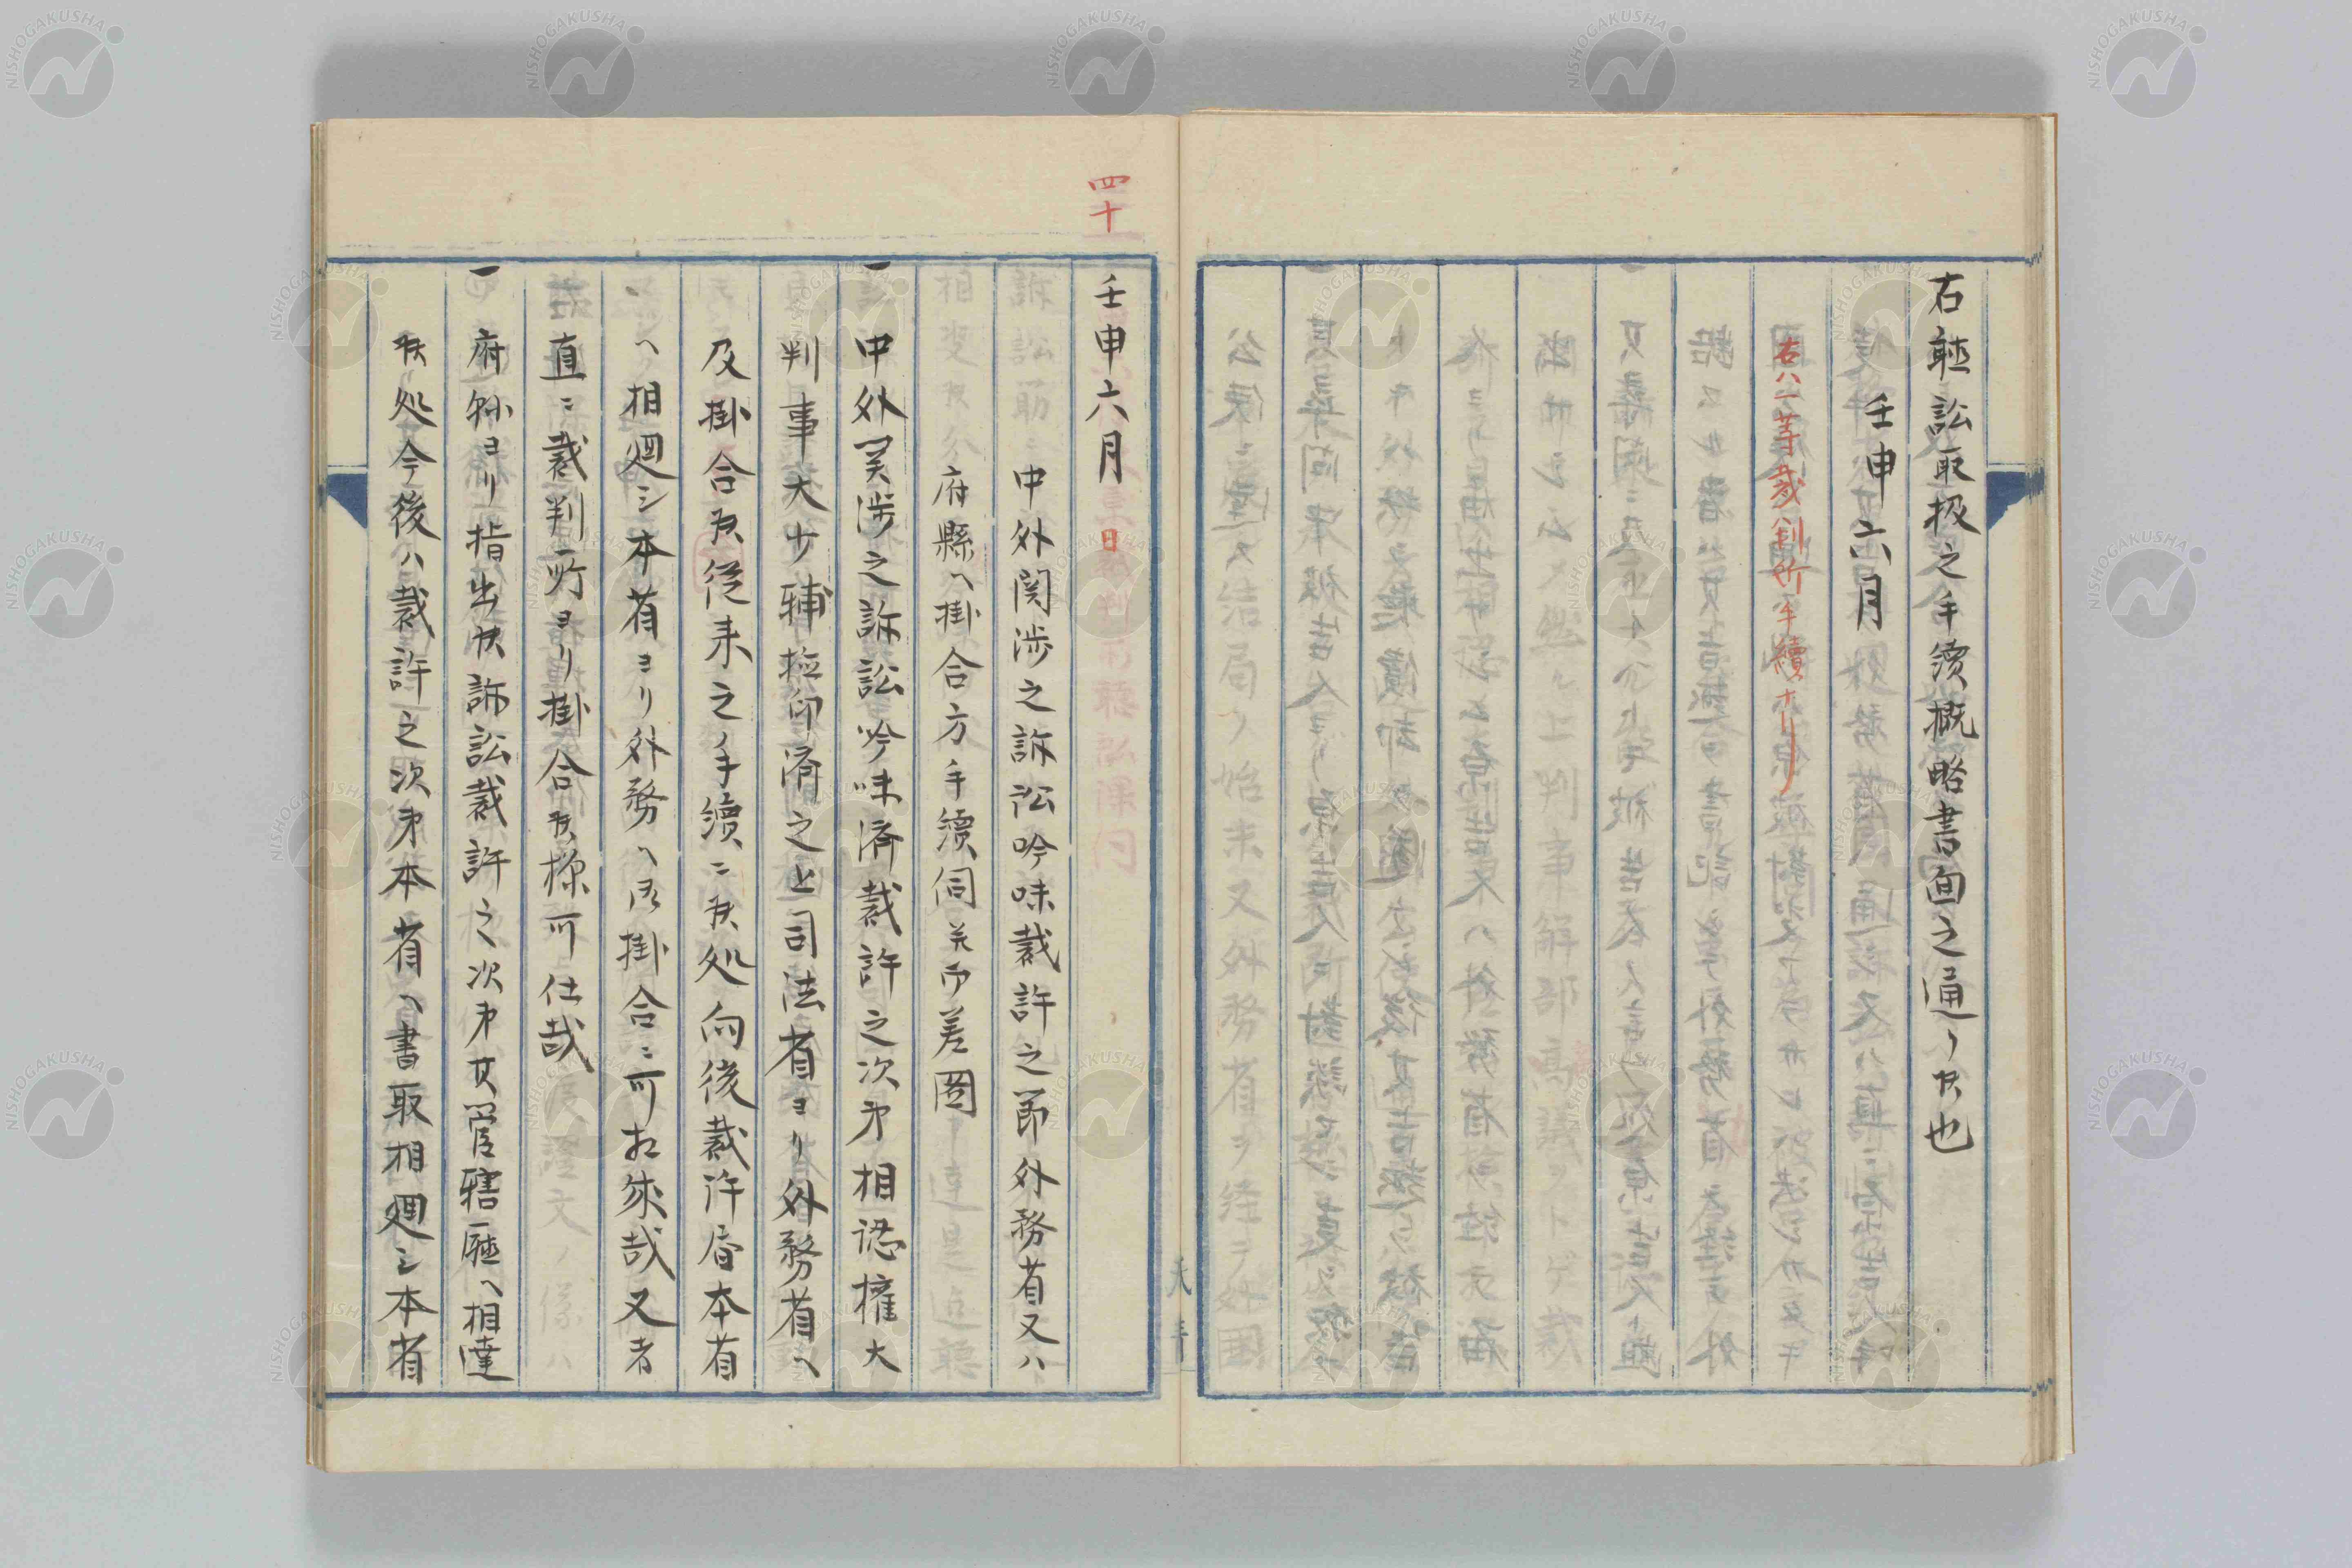 右聴訟取扱之手續概略書面之通ﾉ候也
壬申六月
右ハ一等裁判所手續ナリ
四十
壬申六月 日
中外関渉之訴訟吟味裁許之節外務省又ハ
府縣ヘ掛合方手續伺并御差圖
一中外関渉之訴訟吟味済裁許之次第相認権大
判事大少輔検印済之上司法省ヨリ外務省ヘ
及掛合候従来之手續ニ候処向後裁許居本省
ヘ相廻シ本省ヨリ外務ヘ御掛合ニ可相成哉又者
直ニ裁判所ヨリ掛合候様可仕哉
一府縣ヨリ指出候訴訟裁許之次第其管轄廰ヘ相達
候処今後ハ裁許之次第本省ヘ書取相廻シ本省
NISHOGAKUSHA